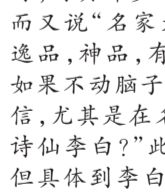 而又说“名家
逸品,神品,有
如果不动脑子
信,尤其是在
诗仙李白?”此
但具体到李白